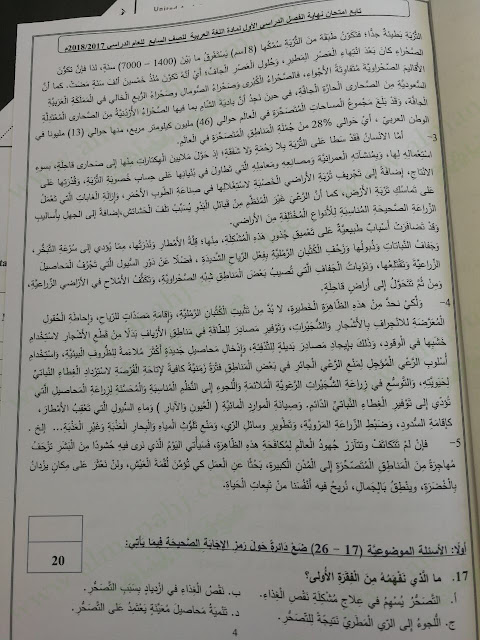 تابع امتحان نهاية الفصل الدراسي الأول لمادة اللغة العربية للصف السابع للعام الدراسي 2018/2017م
التُّربة بطيئة جدًّا؛ فتكوّن طبقة من التّربة سُمكها (18سم) يستغرق ما بَيْنَ (1400 – 7000) سنة، لذا فإنّ تكوّن
الصّحراء كان بعدَ انتهاء العصر المطير، وحُلول العصر الجاف؛ أيْ أنّه تكوّن منذ خمسين ألف سنة مضت، كما أنّ
الأقاليم الصّحراويّة متفاوتة الأجواء، فالصّحراء الكبرى وصَحراء الصّومال وصحراء الرّبع الخالي في المملكة العربيّة
السّعودية مِنَ الصّحاري الحارّة الجافّة، في حين نجدُ أنّ بادية الشّام بما فيها الصّحراء الأردنيّة من الصّحاري المُعتدلة
الجافّة، وقد بلغ مجموع المساحات المتصحّرة في العالم حوالي (46) مليون كيلومتر مربع، منها حوالي (13) مليونا في
الوطن العربيّ، أيْ حوالي 28% من جُملة المناطق المتصحّرة في العالم.
3- أمّا الإنسانُ فقدْ سطا على التُّربة بلا رحمة ولا شفقة؛ إذ حوّل ملايين الهكتارات منها إلى صَحارى قاحلة، بسوء
استعماله لها، وبمنشآته العمرانيّة ومصانعه ومعامله التي تطاول في بُنيانها على حساب خُصوبة التّربة، وقُدرتها على
الانتاج، إضافةً إلى تجريف تُربة الأراضي الخَصبة لاستغلالها في صناعة الطوب الأحمر، وإزالة الغابات التي تعمَلُ
على تماسُك تُربة الأرض، كما أنّ الرّعيَ غَيْرَ المُنظّم مِنْ قبائل البَدو يُسبّبُ تلفَ الحشائش، إضافة إلى الجهل بأساليب
الزّراعة الصّحيحة المُناسبة للأنواع المُختلفة منَ الأراضي.
وقد تضافرَتْ أسبابٌ طبيعيّة على تعميق جُذور هذه المُشكلة، منها: قِلّةُ الأمطار ونُدرتها، ممّا يُؤدي إلى سُرعة التّبخّر،
وجفاف النّباتات وذُبولها وزحف الكُثبان الرّمليّة بفعل الرّياح الشّديدة ، فضلا عن دور السّيول التي تجرُفُ المحاصيل
الزّراعيّة وتقتلعها، ونوبات الجَفاف التي تُصيبُ بعضَ المناطق شبْه الصّحراويّة، وتكثّف الأملاح في الأراضي الزّراعيّة،
ومن ثَمّ تتحوّل إلى أراضٍ قاحلة.
4- ولكيْ نحدّ مِنْ هذه الظّاهرة الخطيرة، لا بُدّ مِنْ تثبيت الكُثبان الرّمليّة، وإقامة مَصدّات للرّياح، وإحاطة الحُقول
المُعرّضة للانجراف بالأشجار والشّجيرات، وتوفير مصادر للطّاقة في مناطق الأرياف بدلًا مِنْ قطع الأشجار لاستخدام
خشبها في الوقود، وذلك بإيجاد مصادرَ بديلة للتّدفئة، وإدخال محاصيل جديدة أكثر مُلاءمة للظّروف البيئيّة، واستخدام
أسلوب الرّعي المُؤجل لمنع الرّعي الجائر في بعض المناطق فترة زمنيّة كافية لإتاحة الفرصة لاسترداد الغطاء النّباتيّ
لحيويّته، والتّوسع في زراعة الشُّجيرات الرّعويّة المُلائمة واللّجوء إلى النُّظم المُناسبة والمُحسّنة لزراعة المَحاصيل التي
تُؤدّي إلى توفير الغطاء النّباتيّ الدّائم. وصيانة الموارد المائيّة ( العُيون والآبار ) وماء السّيول التي تعقبُ الأمطار،
كإقامة السّدود، وضبط الزّراعة المرويّة، وتطوير وسائل الرّي، ومنع تلوّث المياه والبحار العذبة وغير العذبة...  إلخ .
5- فإنْ لمْ تتكاتفْ وتتآزرْ جُهود العالم لِمكافحة هذه الظّاهرة، فسيأتي اليوم الذي نرى فيه حُشودًا مِنَ البَشَر تزحف
مُهاجرة مِنَ المناطق المُتصحّرة إلى المُدُن الكبيرة، بَحْثًا عنِ العمل كي تُؤمّن لُقمة العَيْش، ولنْ نعثُرَ على مكان يزدانُ
بالخُضرة، وينطِقُ بالجَمال، نُريحُ فيه أنفُسَنا منْ تبِعات الحَياة.
أولًا: الأسئلة الموضوعيّة (17 – 26) ضَعْ دائرةً حَوْلَ رمْز الإجابة الصّحيحة فيما يأتي:
20
17. ما الّذي تَفْهَمُهُ مِنَ الفِقرَة الأُولى؟
أ. التّصحُّر يُسْهِمُ في علاج مُشكلة نَقْص الغذاء.
ب. نَقْصُ الغِذاءِ في ازدياد بِسبَب التّصحُّر.
ج. اللُّجوءُ إلى الرّيّ المَطَريّ نَتيجةً للتّصحُّر.
د. تَنْمِيَة مَحاصيل مُعيّنة يَعْتمدُ على التّصحُّر.
4